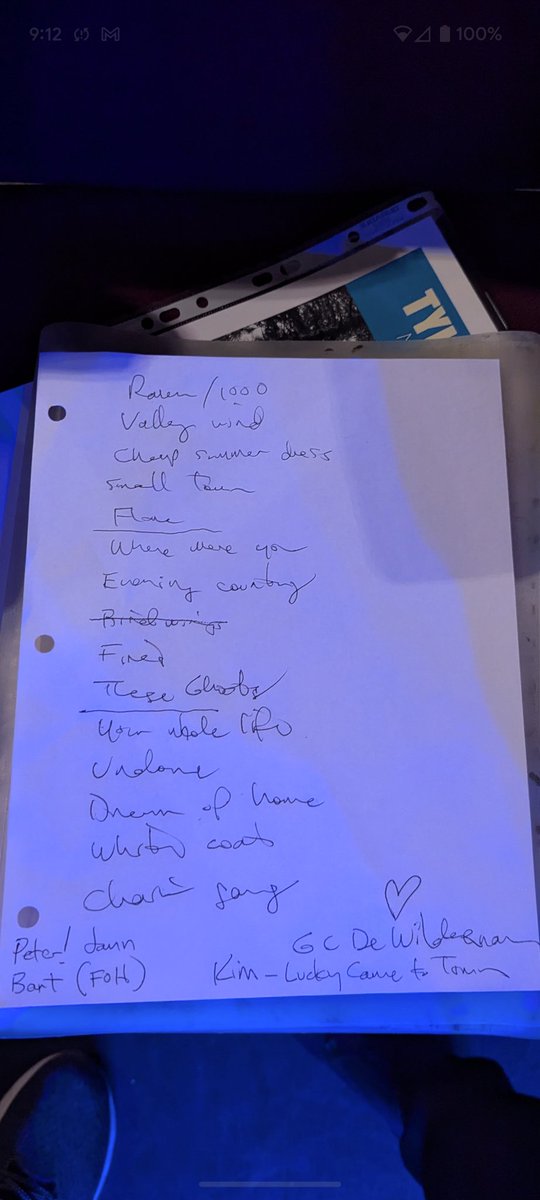 9:12
100%
TY
Raven/1000
Valley wind
Cheap summer dress
Small Town
Flame
Where were you
Evening country
Birdwings
Fined
These Ghosts
Your whole life
Undone
Dream of home
White coats
song
Peter! Jaun
GC De Wildeman
Bart (FOH)
Kim - Lucky Came to Town